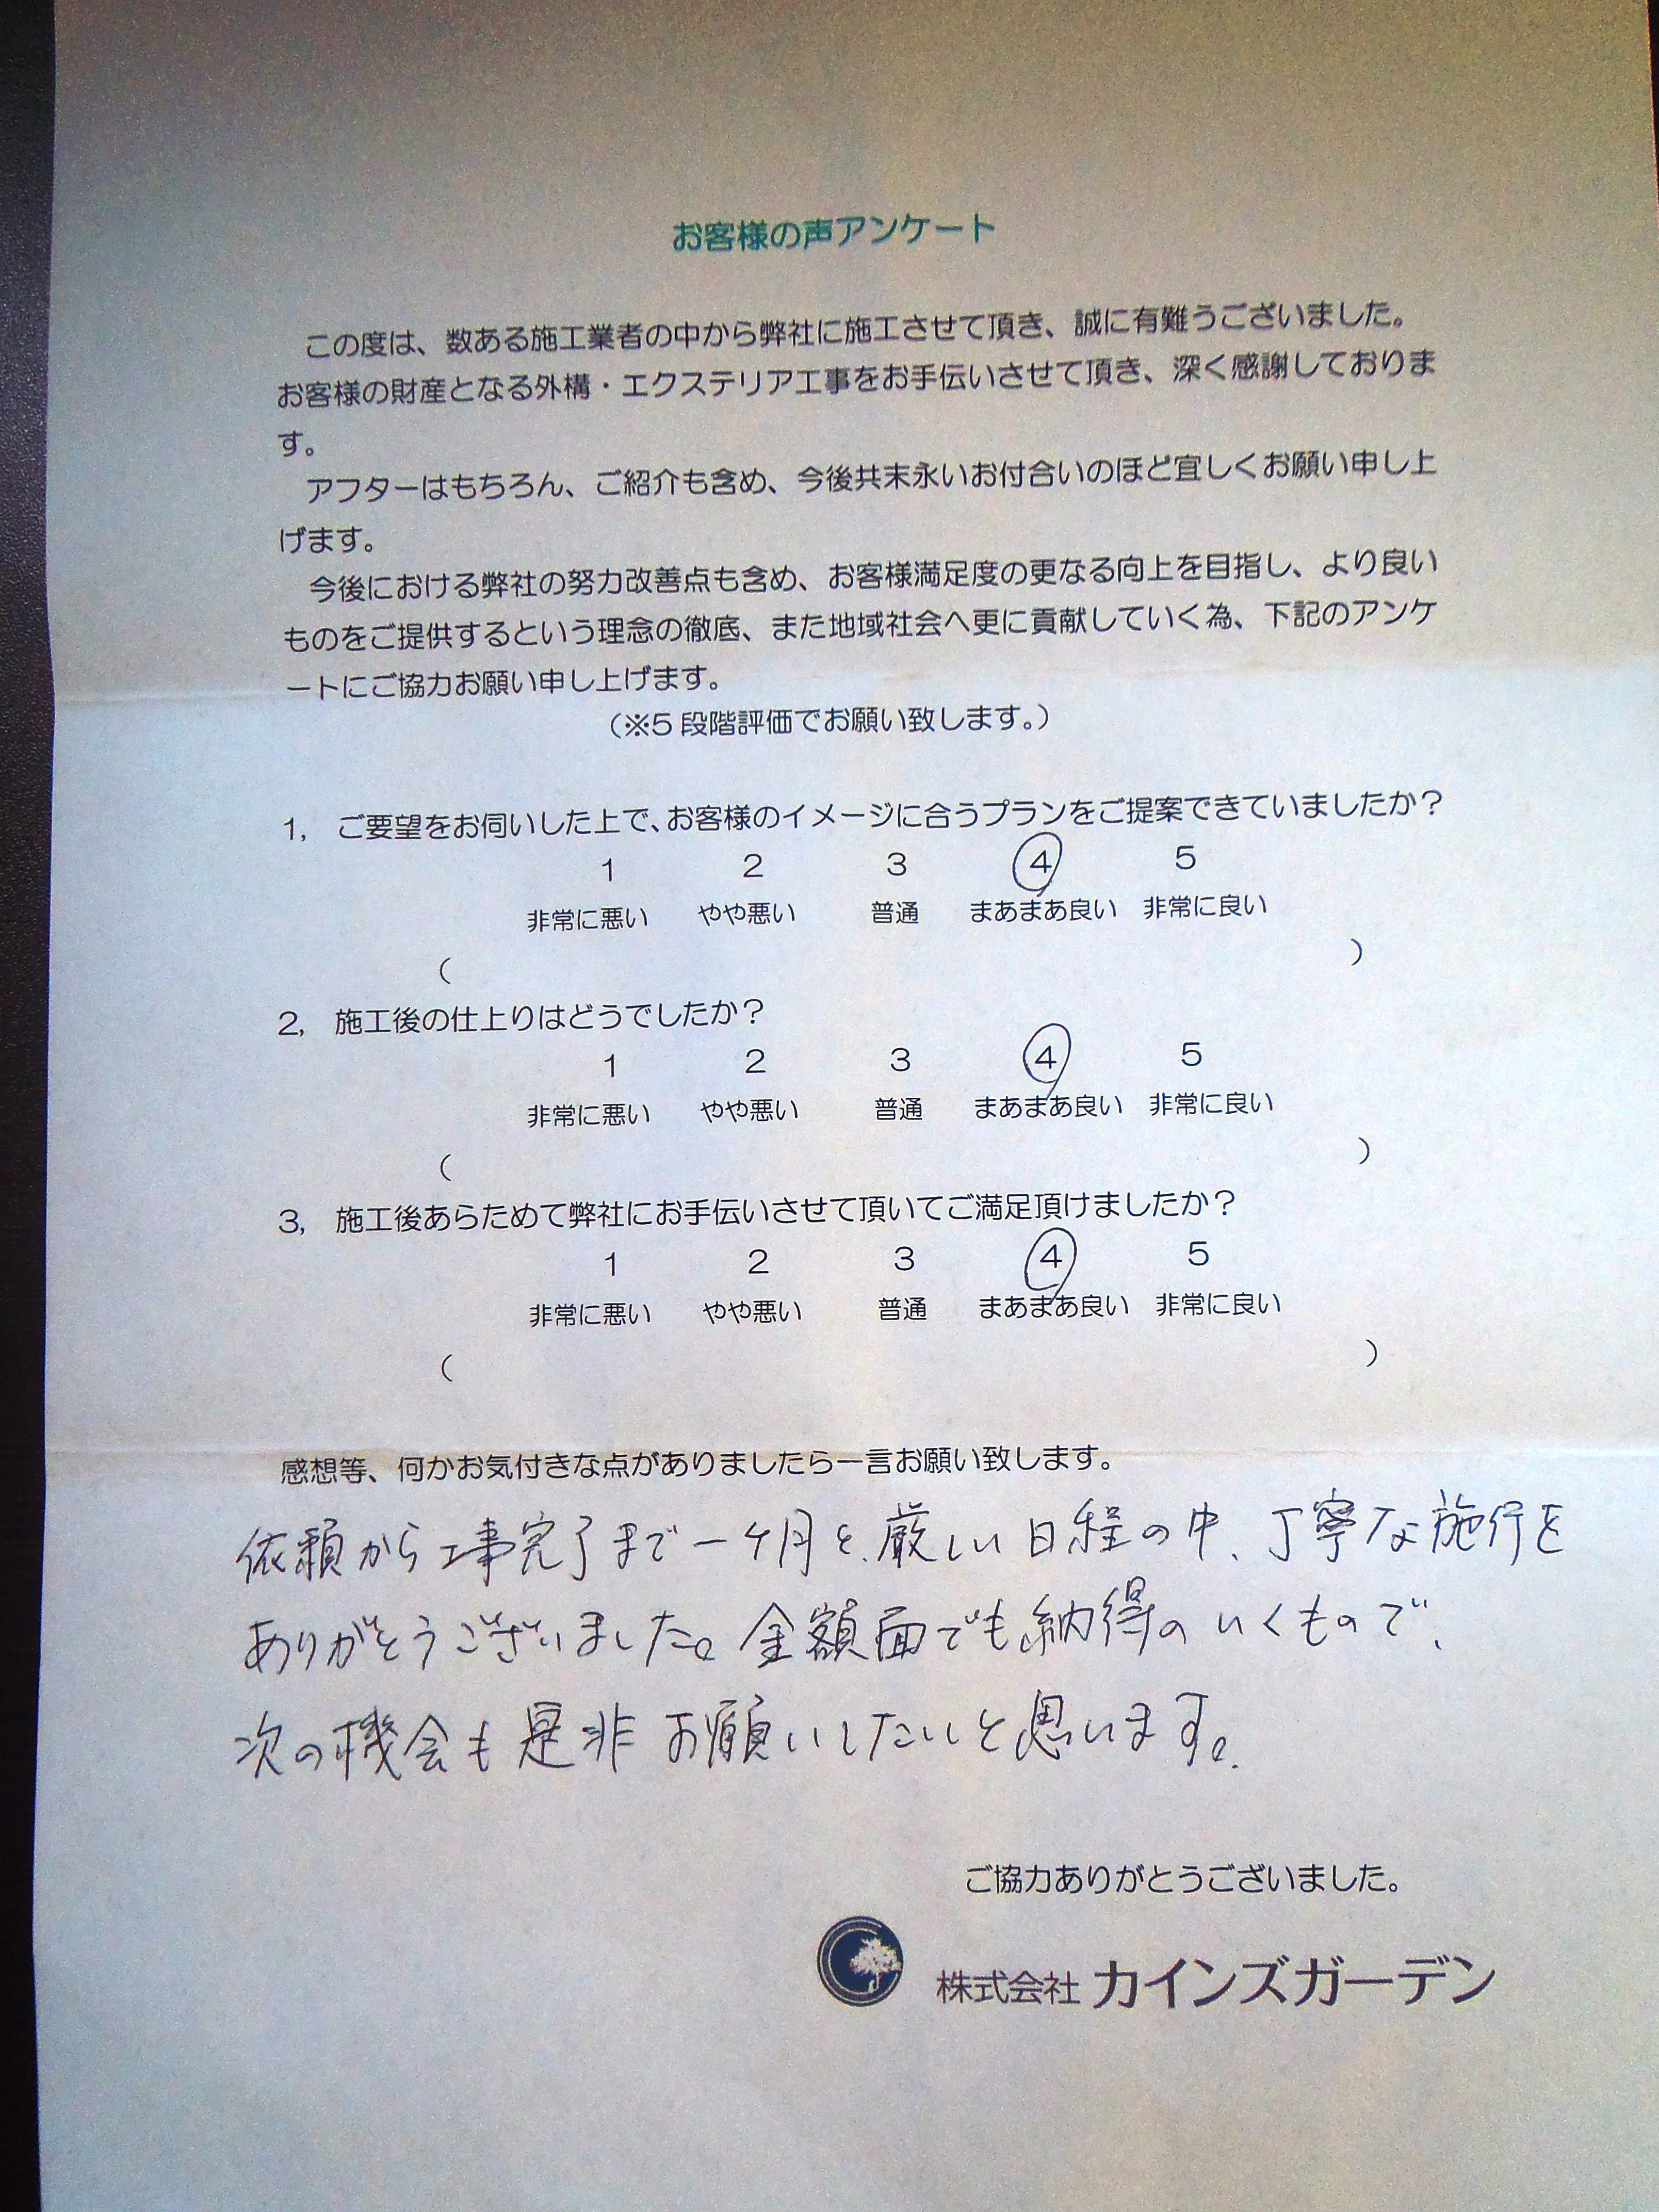 お客様の声アンケート
この度は、数ある施工業者の中から弊社に施工させて頂き、誠に有難うございました。
お客様の財産となる外構・エクステリア工事をお手伝いさせて頂き、深く感謝しておりま
す。
アフターはもちろん、ご紹介も含め、今後共末永いお付合いのほど宜しくお願い申し上
げます。
今後における弊社の努力改善点も含め、お客様満足度の更なる向上を目指し、より良い
ものをご提供するという理念の徹底、また地域社会へ更に貢献していく為、下記のアンケ
ートにご協力お願い申し上げます。
（※5 段階評価でお願い致します。）
1, ご要望をお伺いした上で、お客様のイメージに合うプランをご提案できていましたか？
1 2 3 4 5
非常に悪い やや悪い 普通 まあまあ良い 非常に良い
（ ）
2, 施工後の仕上りはどうでしたか？
1 2 3 4 5
非常に悪い やや悪い 普通 まあまあ良い 非常に良い
（ ）
3, 施工後あらためて弊社にお手伝いさせて頂いてご満足頂けましたか？
1 2 3 4 5
非常に悪い やや悪い 普通 まあまあ良い 非常に良い
（ ）
感想等、何かお気付きな点がありましたら一言お願い致します。
依頼から工事完了まで一ケ月と、厳しい日程の中、丁寧な施行を
ありがとうございました。金額面でも納得のいくもので、
次の機会も是非お願いしたいと思います。
ご協力ありがとうございました。
株式会社 カインズガーデン